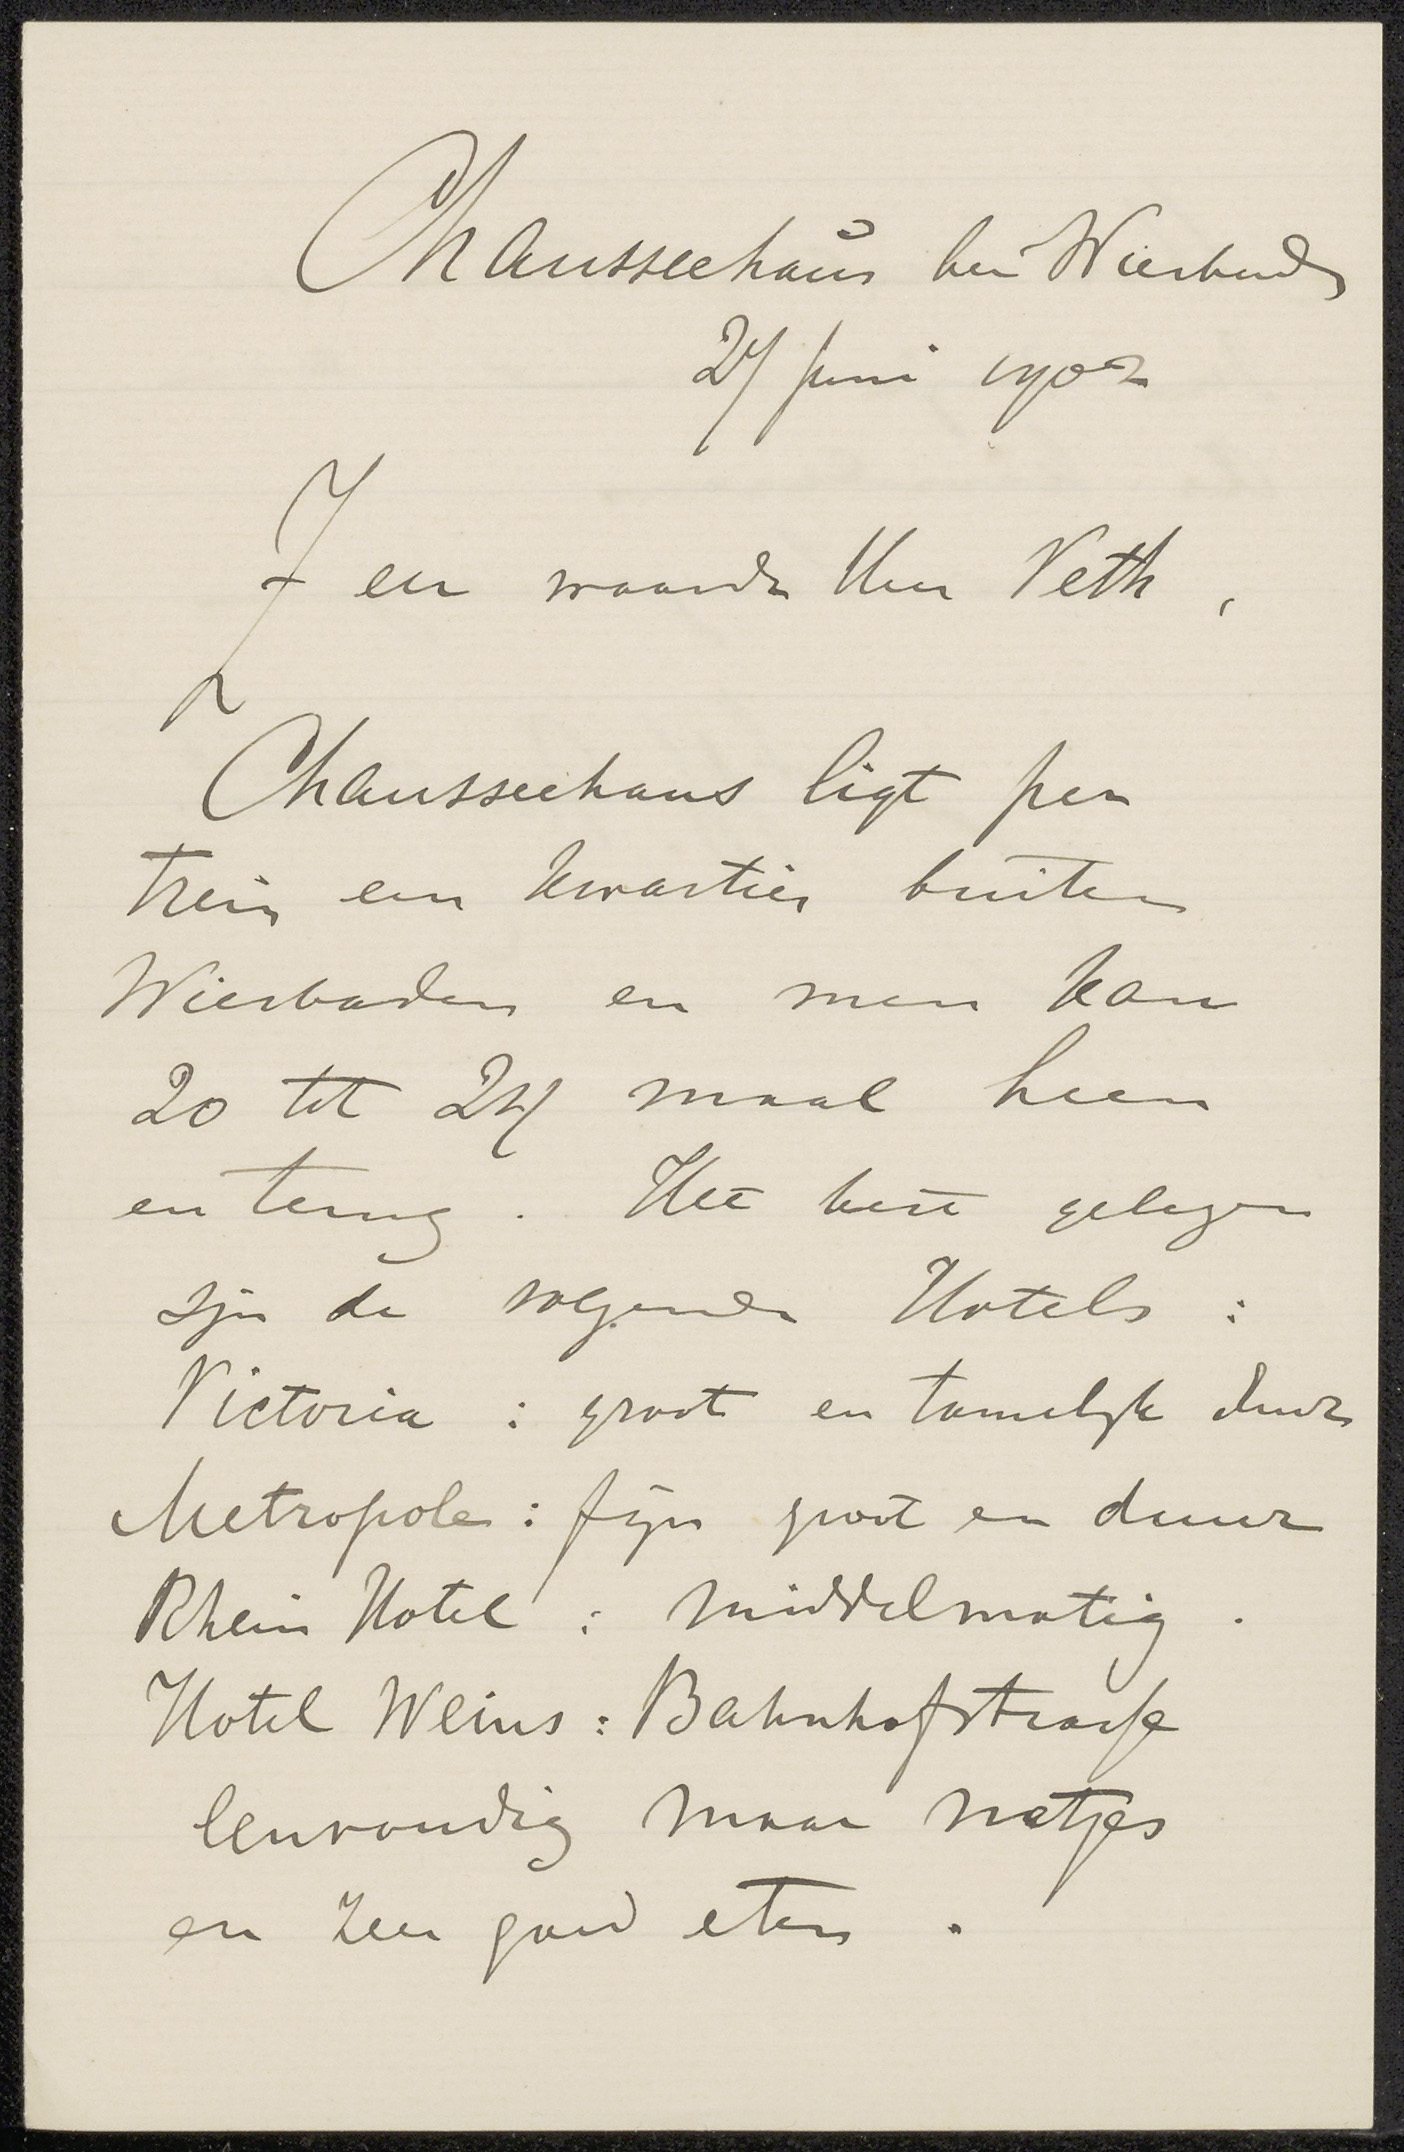 Chausseehaus bei Wiesbaden
27 Juni 1902
Zeer waarde Heer Veth,
Chausseehaus ligt per
trein een kwartier buiten
Wiesbaden en men kan
20 tot 24 maal heen
en terug. Het best gelegen
zijn de volgende Hotels:
Victoria: groot en tamelijk duur
Metropole: fijn groot en duur
Rhein Hotel: middelmatig.
Hotel Weins: Bahnhofstraße
eenvoudig maar netjes
en zeer goed eten.